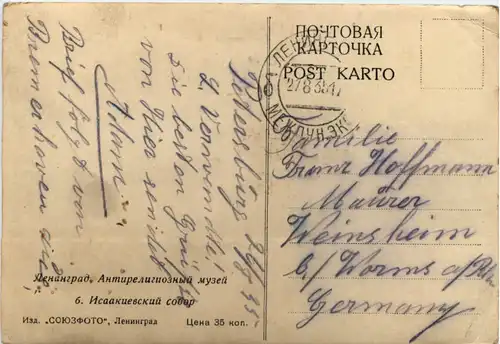 ПОЧТОВАЯ
КАРТОЧКА
POST KARTO
ЛЕНИН
27 8 35 17
МЕЖДУН. ЭКС
Petersburg 26/8 35.
L. Verwandte!
Die besten Grüße
von hier sendet
Adam.
Brief folgt von
Bremerhaven
Familie
Franz Hoffmann
Maurer
Weinsheim
b/ Worms a/Rh
Germany
Ленинград. Антирелигиозный музей
б. Исаакиевский собор
Изд. „СОЮЗФОТО", Ленинград Цена 35 коп.